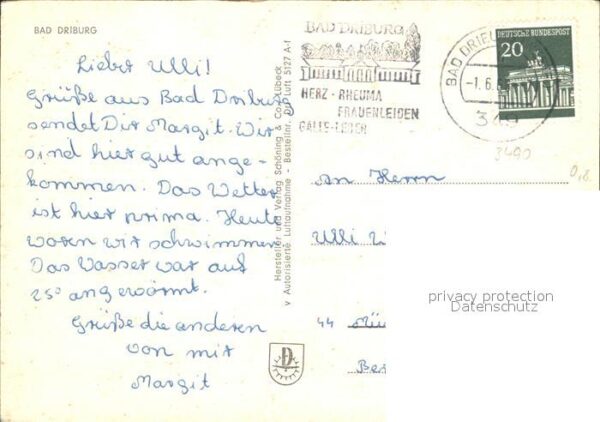 BAD DRIBURG
Lieber Ulli!
Grüße aus Bad Driburg
sendet Dir Margit. Wir
sind hier gut ange-
kommen. Das Wetter
ist hier prima. Heute
waren wir schwimmen.
Das Wasser war auf
25° angewärmt.
Grüße die anderen
von mir
Margit
Hersteller und Verlag Schöning & Co., Lübeck
v Autorisierte Luftaufnahme - Bestellnr. Dr Luft 5127 A-f
BAD DRIBURG
HERZ - RHEUMA
FRAUENLEIDEN
GALLE-LEBER
BAD DRIBU
-1.6.
349
DEUTSCHE BUNDESPOST
20
3490
0,8
An Herrn
Ulli
44
privacy protection
Datenschutz